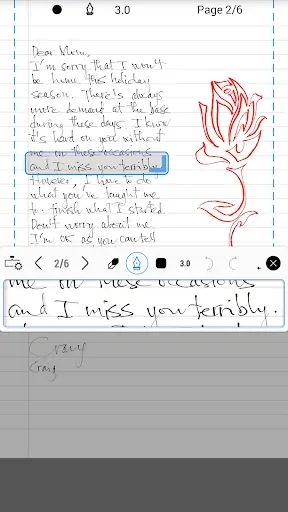 3.0 Page 2/6
Dear Mum,
I'm sorry that I won't
be home this holiday
season. There's always
more demand at the base
during these days. I know
it's hard on you without
me in these occasions
and I miss you terribly.
However, I have to do
what you've taught me
to: finish what I started
Don't worry about me.
I'm OK as you can tell
2/6 3.0
me in these occasions
and I miss you terribly.
Craig
Craig